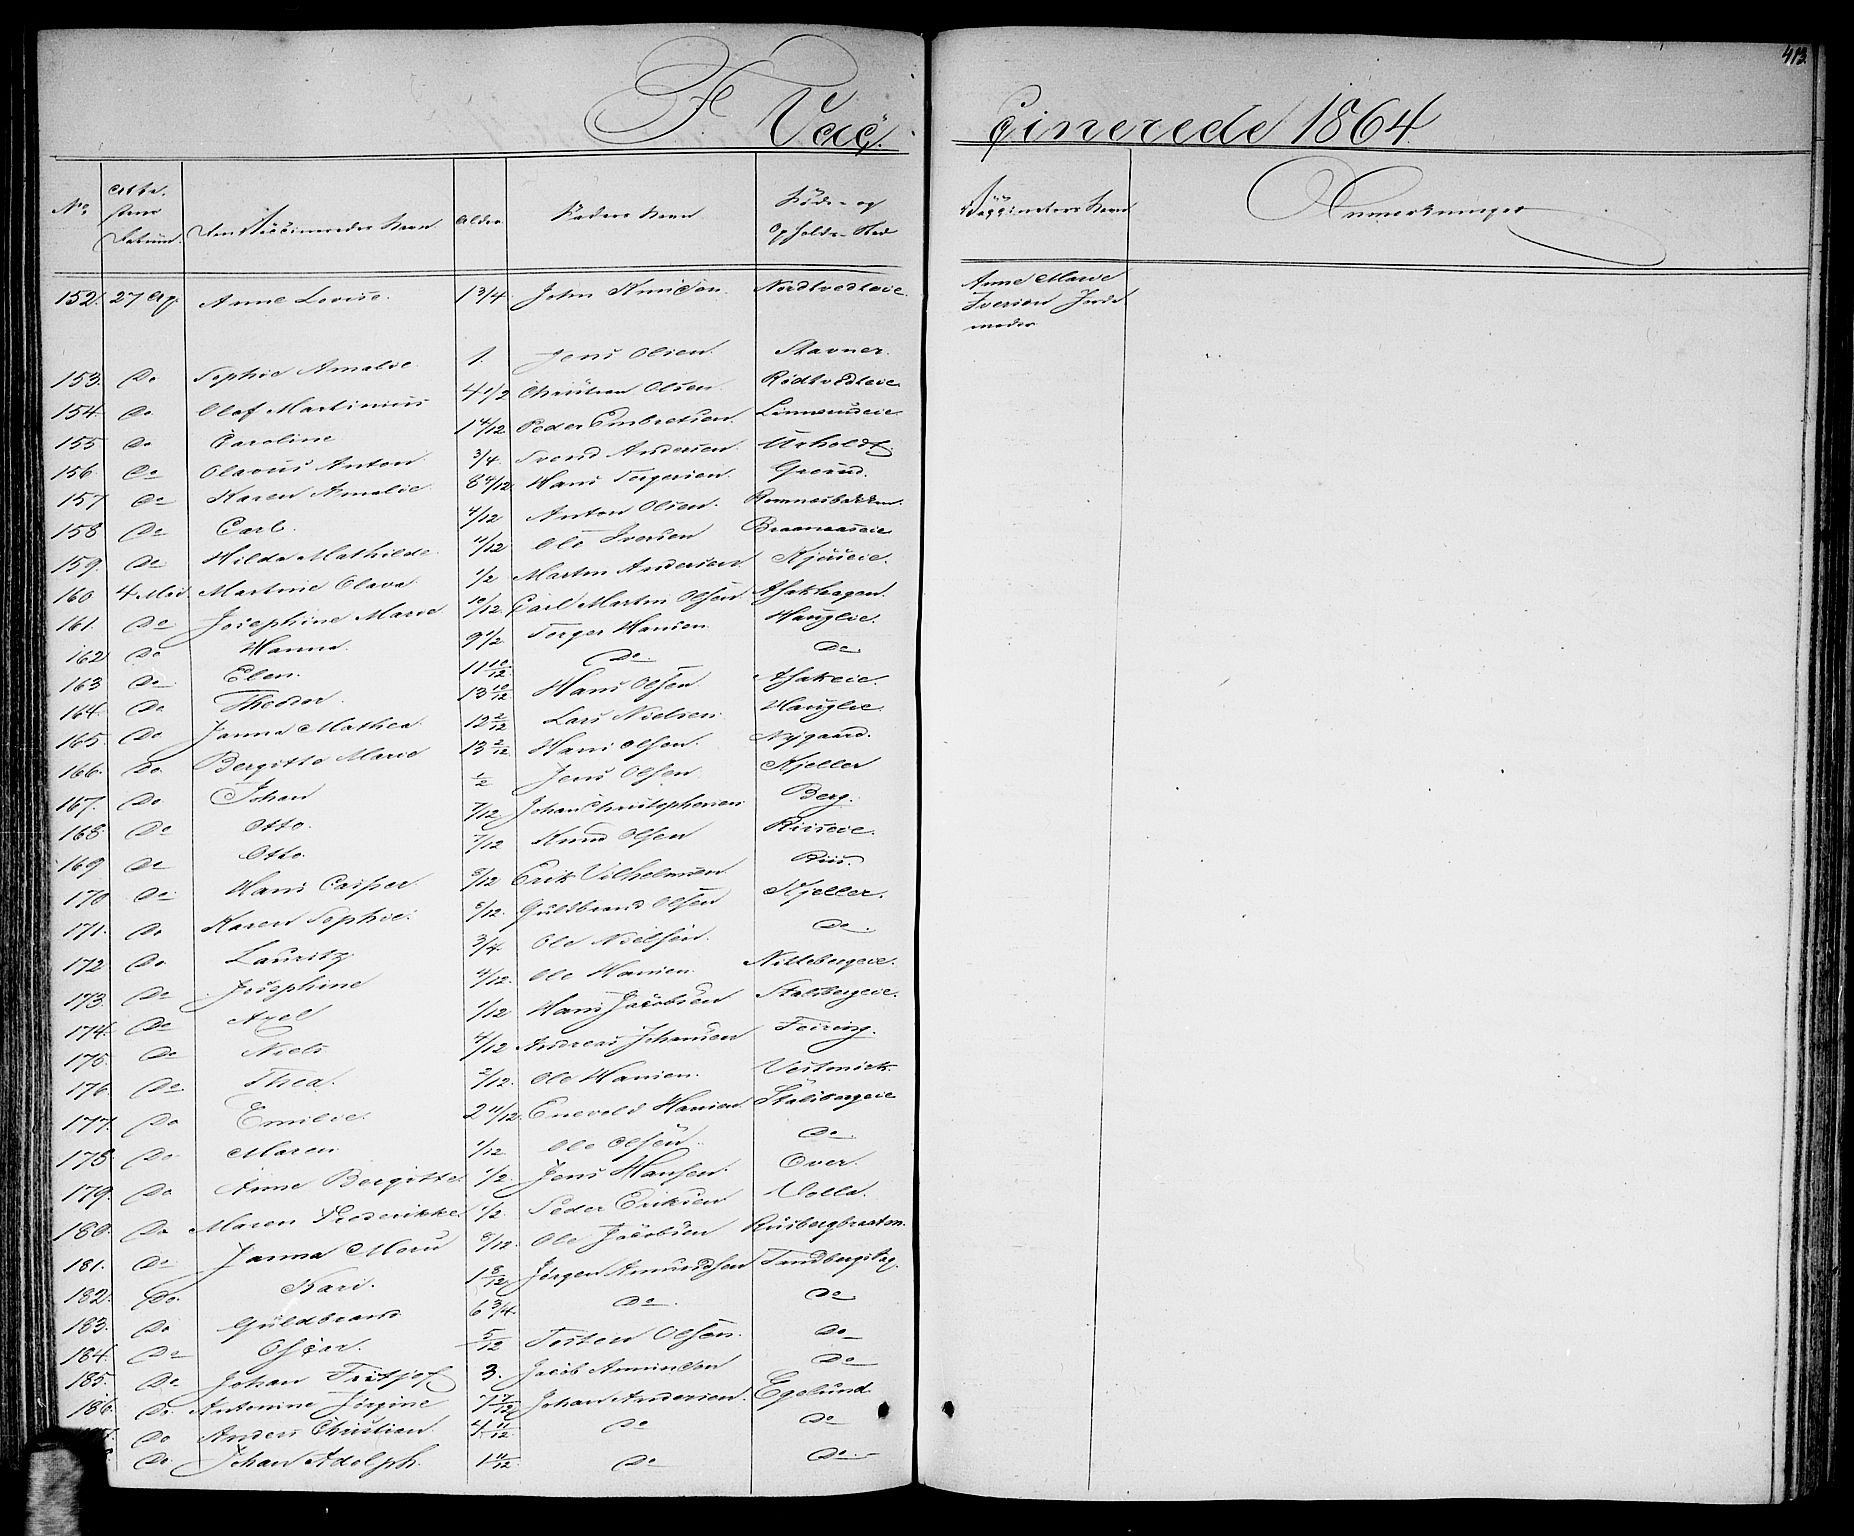 413.
F. Vac-
cinerede 1864.
No. Attestens Datum. Den Vaccineredes Navn Alder Faders Navn Føde- og Opholds-Sted Vaccinateurs Navn Anmerkninger
152. 27 Aug. Anne Lovise. 1 3/4. John Knudsen. Nordtvedteie. Anne Marie
Iversen Jorde
moder
153. Do Sophie Amalie. 1. Jens Olsen. Stavner.
154. Do Olaf Martinius 4 1/2 Christian Olsen. Rødtvedteie.
155 Do Caroline 1 4/12 Peder Embretsen. Linneruseie
156. Do Olavus Anton 3/4. Svend Andersen.
157 Do Karen Amalie. 8 4/12. Hans Torgersen. Grorud.
158 Do Carl. 4/12 Anton Olsen. Romnesbakken.
159. Do Hilda Mathilde. 11/12 Ole Iversen Braanaaseie
160 4 Mai. Martine Olava 1/2 Martin Andersen. Kjuseie.
161. Do Josephine Marie 10/12. Carl Martin Olsen Asakhagen.
162 Do Hanna. 9 1/2. Torger Hansen. Hauglie.
163 Do Elen. 11 10/12 Do Do
164. Do Theodor. 13 10/12 Hans Olsen. Asakeie.
165. Do Janna Mathea. 12 2/12 Lars Nielsen. Hauglie.
166. Do. Bergitte Marie 13 2/12 Hans Olsen. Nygaard.
167. Do Johan 1/2 Jens Olsen. Kjeller
168 Do Otto. 7/12 Johan Christophersen Berg.
169 Do Otto. 7/12 Knud Olsen Riiseie.
170 Do Hans Casper. 5/12 Erik Vilhelmsen Riis.
171. Do Karen Sophie. 8/12. Guldbrand Olsen Kjeller.
172 Do Lauritz 3/4. Ole Nielsen. Do.
173. Do Josephine 4/12. Ole Hansen. Nittebergeie.
174. Do Axel 1/12 Hans Jacobsen Stalsbergeie.
175. Do Niels 4/12 Andreas Johansen Feiring.
176 Do Thea. 2/12. Ole Hansen. Vestvick.
177. Do Emilie. 2 11/12. Enevold Hansen. Stalsbergeie
178. Do Maren 1/12 Ole Olsen Do.
179. Do Anne Bergitte 1/2. Jens Hansen. Over.
180. Do Maren Frederikke 1/2. Peder Eriksen Volla.
181. Do Janna Marie 8/12. Ole Jacobsen Riisbergbraaten.
182. Do. Kari. 1 8/12 Jørgen Amundsen Sandbergshag.
183. Do Guldbrand 6 3/4. Do. Do
184. Do Oscar. 5/12 Torsten Olsen. Do
185. Do Johan Fritjof 3. Jacob Amundsen Do
186. Do. Antonine Jørgine 7 7/12 Johan Andersen. Egelund
Do Anders Christian. 4 11/12 Do Do
Do. Johan Adolph. 1 4/12. Do Do.